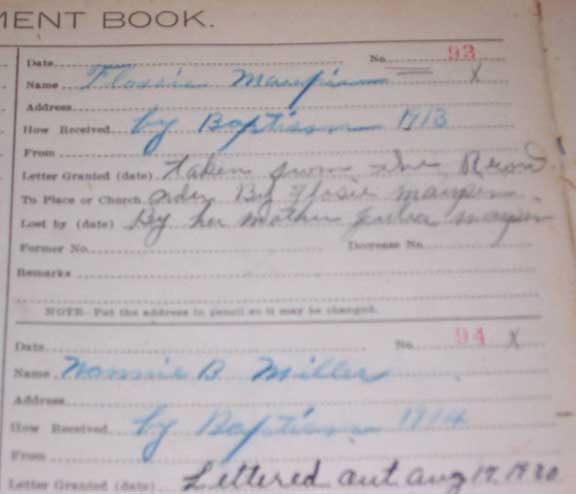 MENT BOOK.
Date No. 93
Name Flossie Maupin X
Address
How Received by Baptism 1913
From
Letter Granted (date) taken from the
To Place or Church order By Flosie Maupin
Lost by (date) By her mother
Former No. Decrease No.
Remarks
NOTE—Put the address in pencil so it may be changed.
Date No. 94 X
Name Nannie B Miller
Address
How Received by Baptism 1914
From
Letter Granted (date) Lettered out Aug 17, 1920